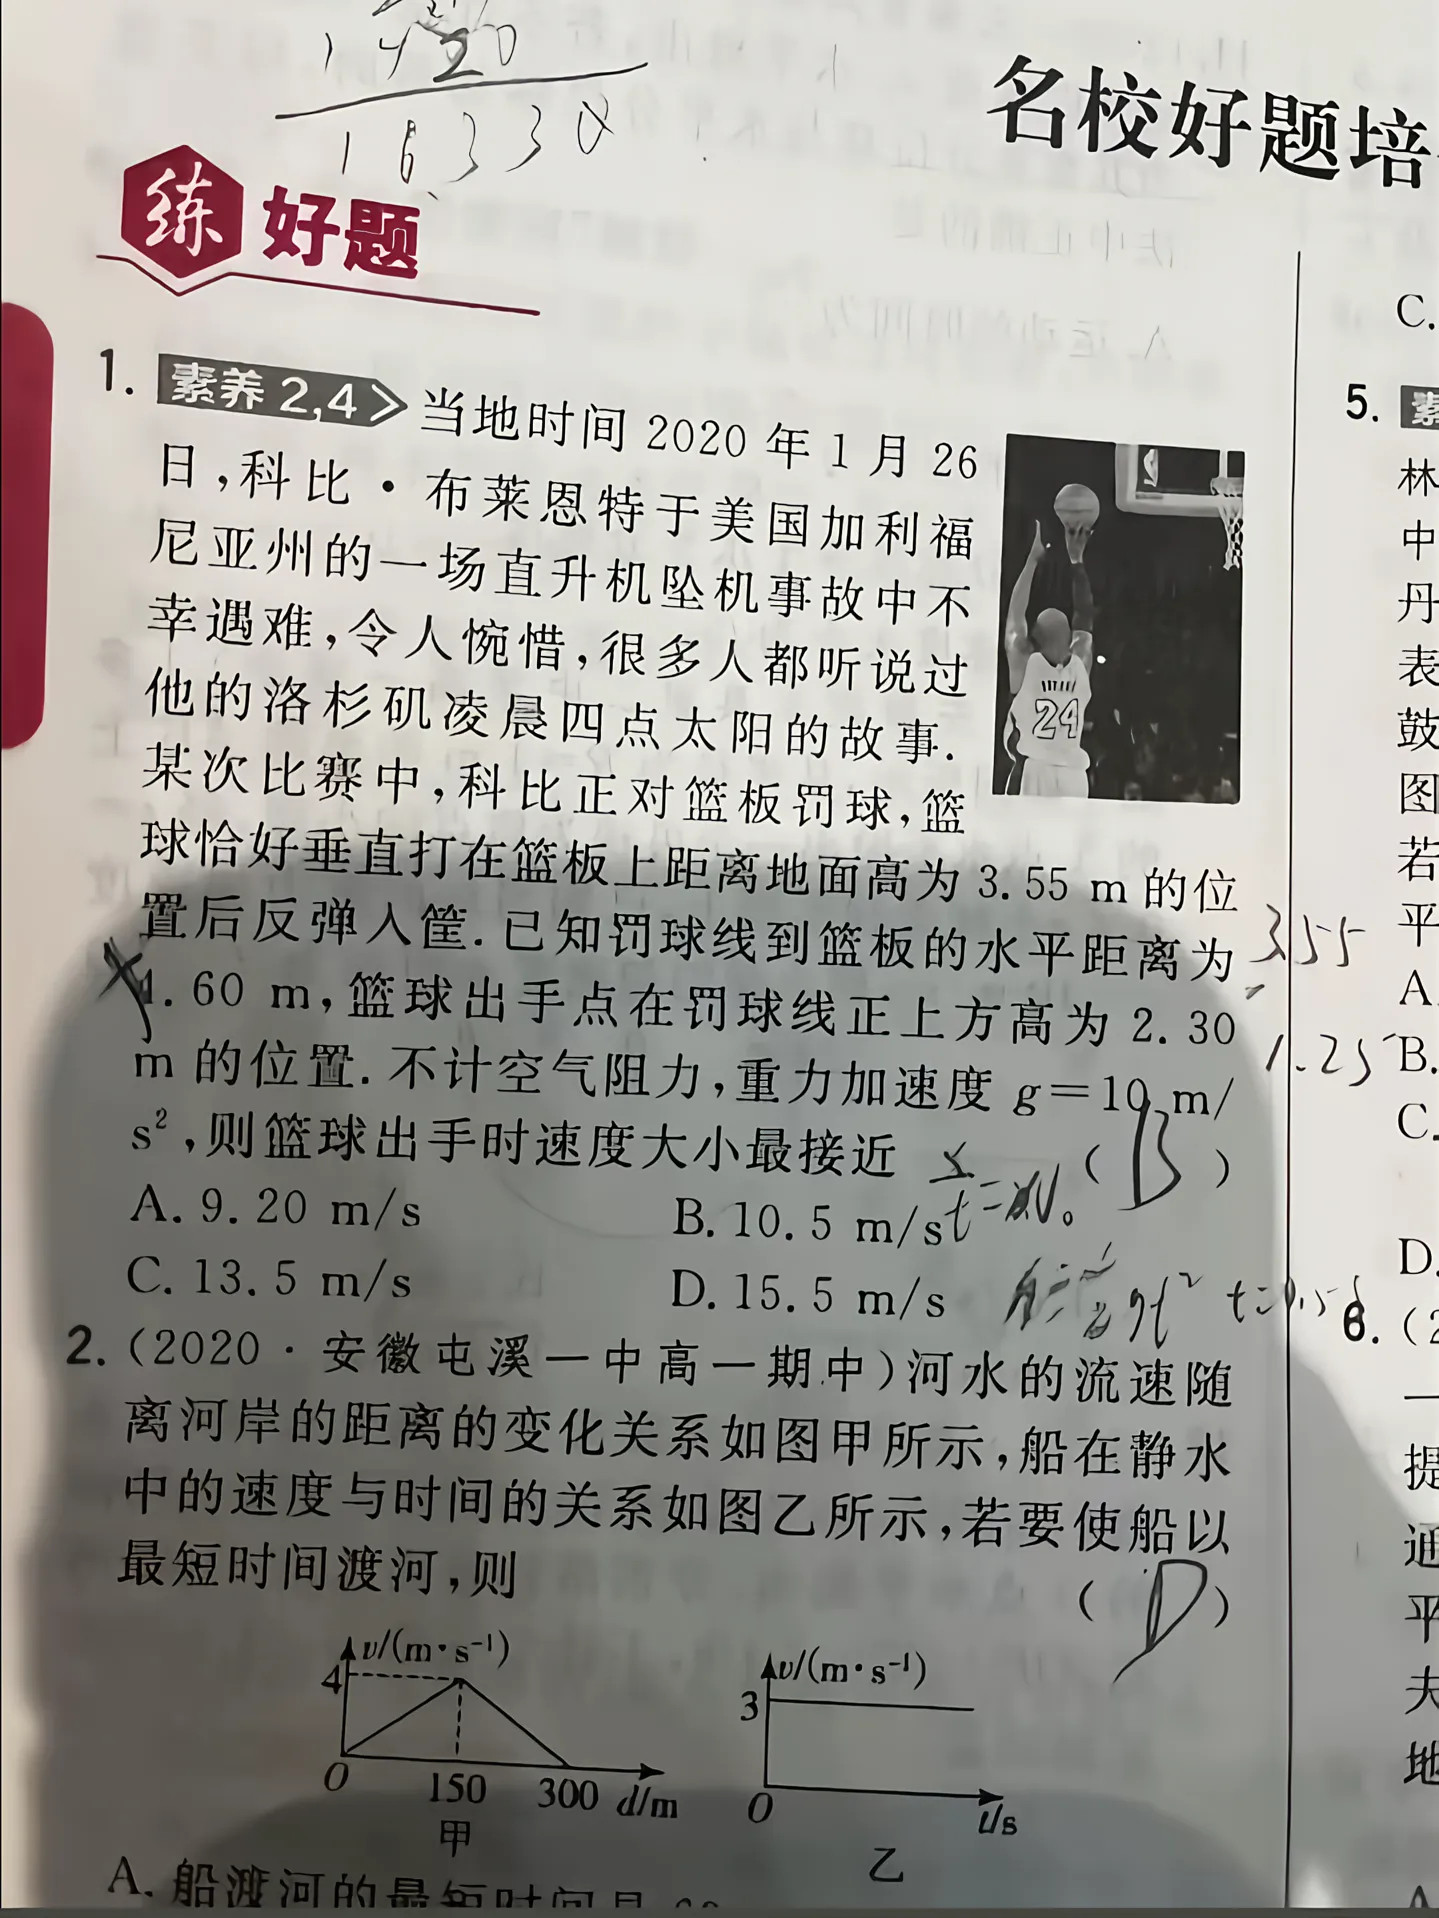 1 4 2 0
1 6 3 3 0
名校好题培
练 好题
1. 素养 2,4 当地时间 2020 年 1 月 26
日,科比·布莱恩特于美国加利福
尼亚州的一场直升机坠机事故中不
幸遇难,令人惋惜,很多人都听说过
他的洛杉矶凌晨四点太阳的故事.
某次比赛中,科比正对篮板罚球,篮
24
球恰好垂直打在篮板上距离地面高为 3.55 m 的位
置后反弹入筐.已知罚球线到篮板的水平距离为
3.55
4.60 m,篮球出手点在罚球线正上方高为 2.30
m 的位置.不计空气阻力,重力加速度 g=10 m/
1.25
s²,则篮球出手时速度大小最接近 ( B )
x/t=v₀
A. 9.20 m/s B. 10.5 m/s
C. 13.5 m/s D. 15.5 m/s
h=1/2gt² t=0.5s
2. (2020·安徽屯溪一中高一期中)河水的流速随
离河岸的距离的变化关系如图甲所示,船在静水
中的速度与时间的关系如图乙所示,若要使船以
最短时间渡河,则 ( D )
v/(m·s⁻¹)
4
O 150 300 d/m
甲
v/(m·s⁻¹)
3
O t/s
乙
A. 船渡河的最短时间是
C.
5. 素
林
中
丹
表
鼓
图
若
平
A.
B.
C.
D.
6. (2
一
提
通
平
夫
地
A